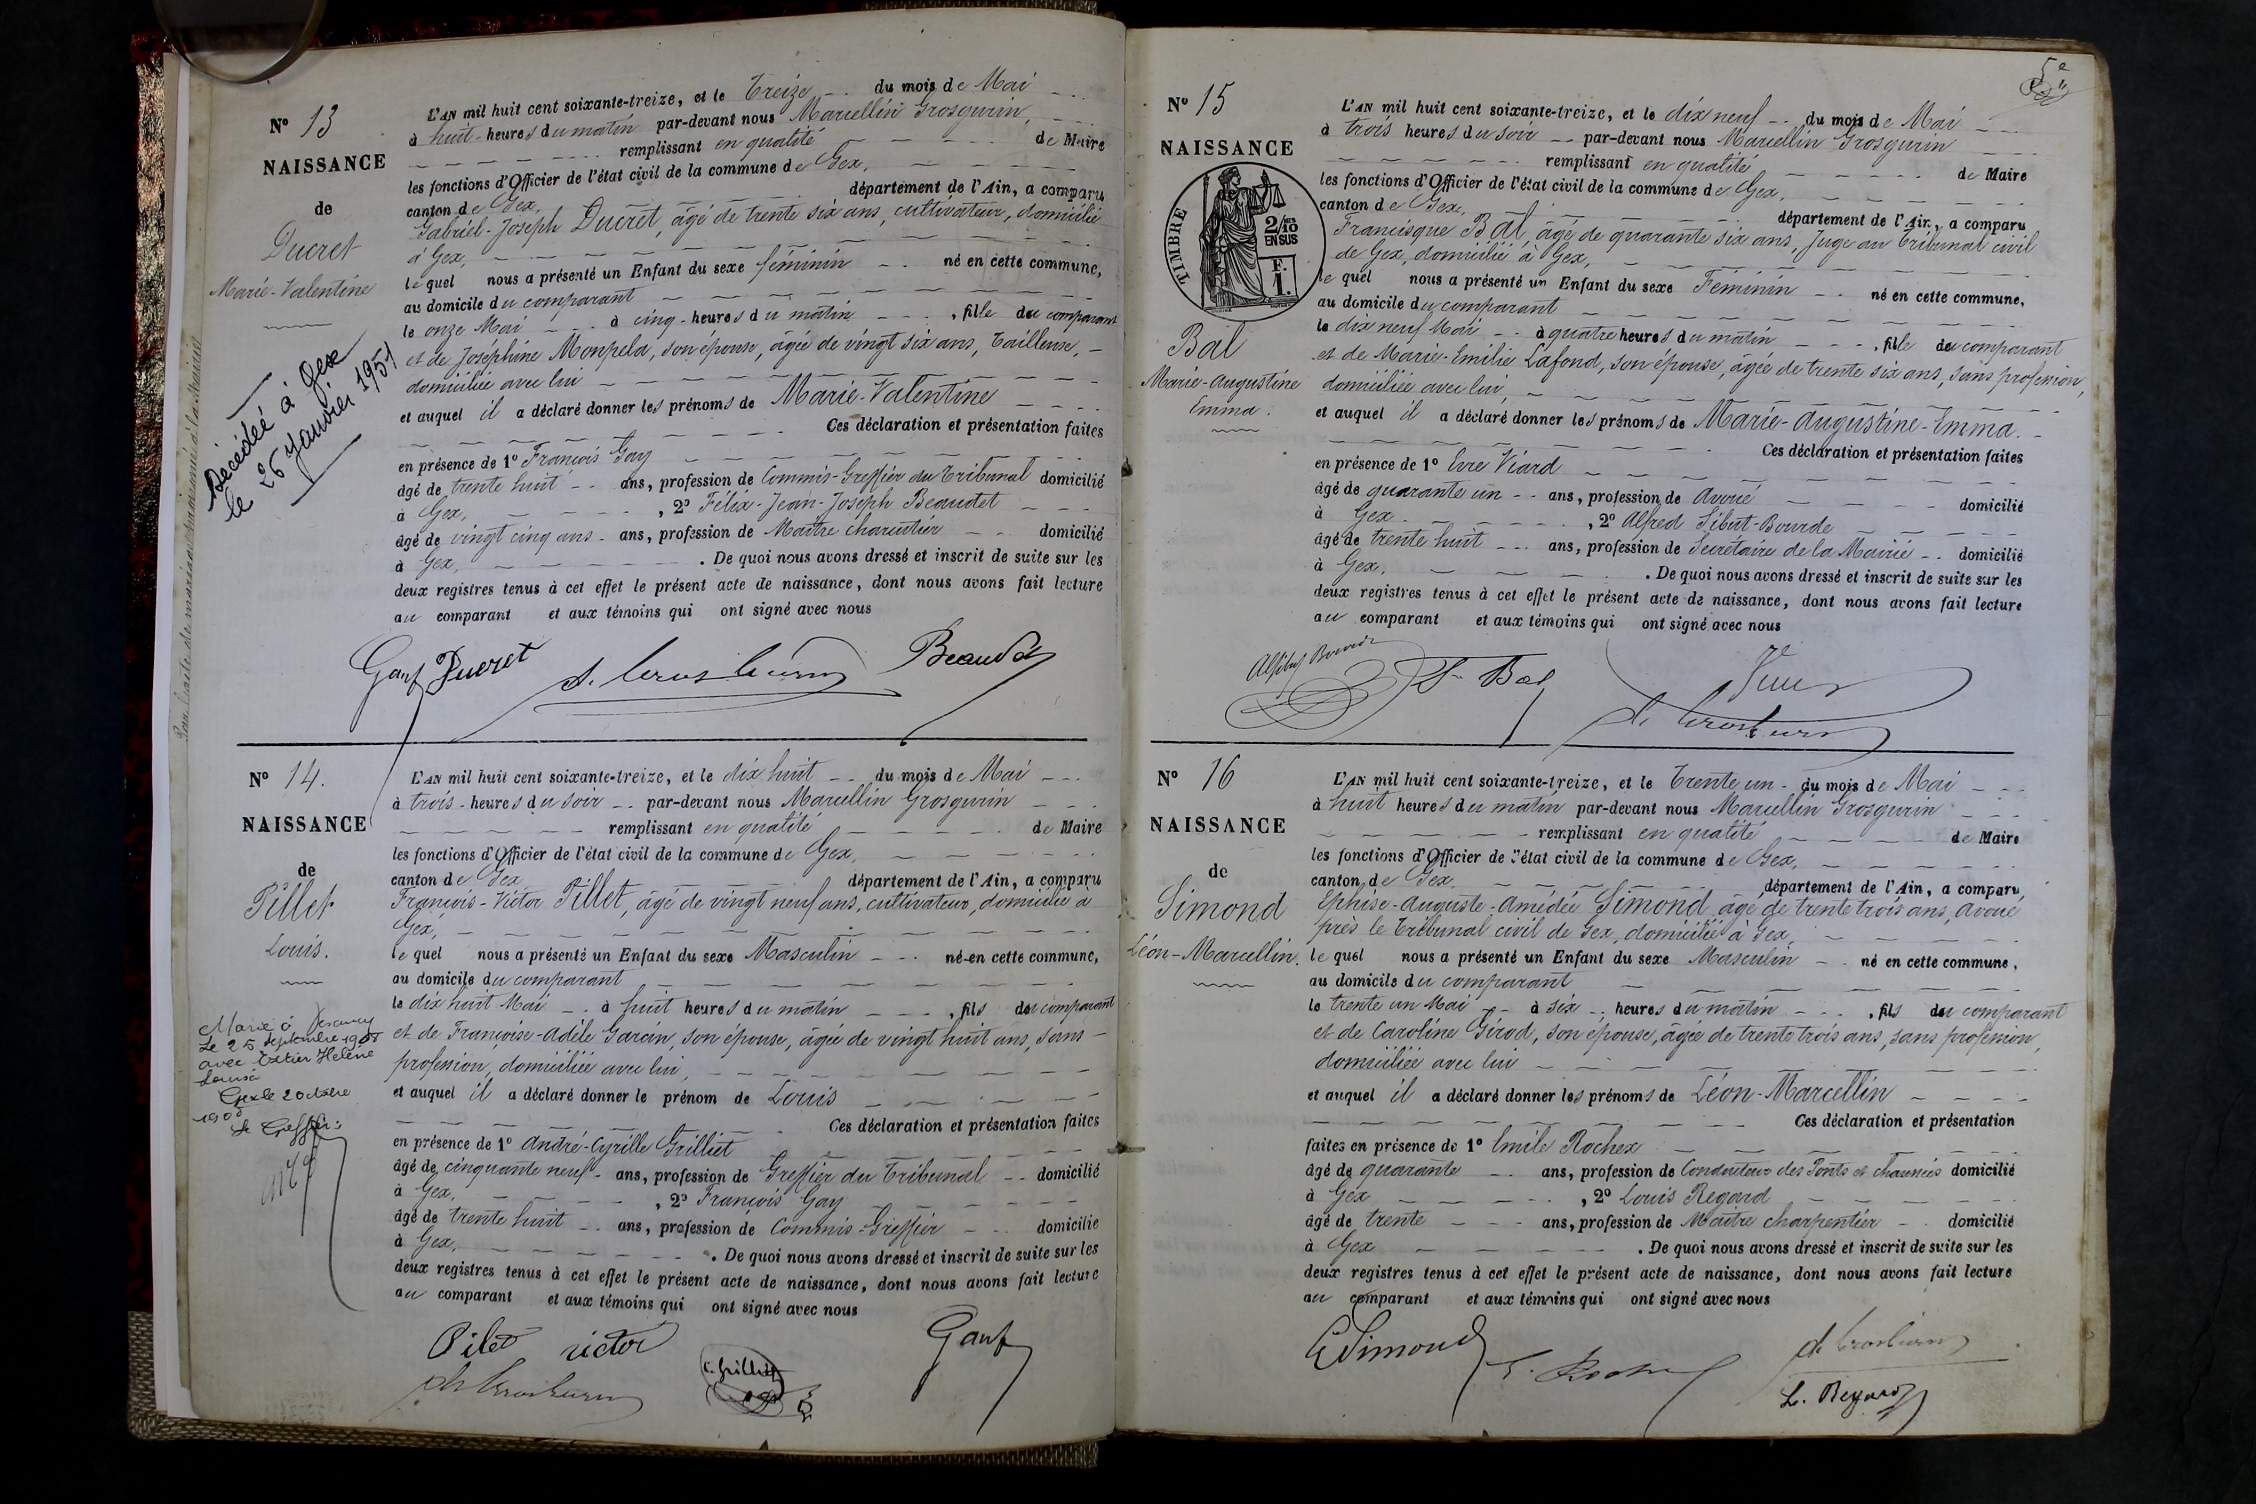 N° 13
NAISSANCE
de
Ducret
Marie-Valentine
Décédée à Gex
le 26 Janvier 1951
L'AN mil huit cent soixante-treize, et le Treize du mois de Mai
à huit heures du matin par-devant nous Marcellin Grosgurin,
remplissant en qualité de Maire
les fonctions d'Officier de l'état civil de la commune de Gex,
canton de Gex, département de l'Ain, a comparu
Gabriel-Joseph Ducret, âgé de trente six ans, cultivateur, domicilié
à Gex,
lequel nous a présenté un Enfant du sexe féminin né en cette commune,
au domicile du comparant
le onze Mai à cinq heures du matin, fille du comparant
et de Joséphine Monpela, son épouse, âgée de vingt six ans, Tailleuse,
domiciliée avec lui
et auquel il a déclaré donner les prénoms de Marie-Valentine
Ces déclaration et présentation faites
en présence de 1° François Gay
âgé de trente huit ans, profession de Commis-Greffier du Tribunal domicilié
à Gex, , 2° Félix-Jean-Joseph Beaudet
âgé de vingt cinq ans ans, profession de Maître charcutier domicilié
à Gex, . De quoi nous avons dressé et inscrit de suite sur les
deux registres tenus à cet effet le présent acte de naissance, dont nous avons fait lecture
au comparant et aux témoins qui ont signé avec nous
Ducret
N° 14.
NAISSANCE
de
Pillet
Louis.
le 25 Septembre
avec Hélène
Gex le 2 octobre
L'AN mil huit cent soixante-treize, et le dix huit du mois de Mai
à trois heures du soir par-devant nous Marcellin Grosgurin
remplissant en qualité de Maire
les fonctions d'Officier de l'état civil de la commune de Gex,
canton de Gex département de l'Ain, a comparu
François-Victor Pillet, âgé de vingt neuf ans, cultivateur, domicilié à
Gex,
lequel nous a présenté un Enfant du sexe Masculin né en cette commune,
au domicile du comparant
le dix huit Mai à huit heures du matin, fils du comparant
et de Françoise-Adèle Garcin, son épouse, âgée de vingt huit ans, sans
profession, domiciliée avec lui,
et auquel il a déclaré donner le prénom de Louis
Ces déclaration et présentation faites
en présence de 1° André-Cyrille Grilliet
âgé de cinquante neuf ans, profession de Greffier du Tribunal domicilié
à Gex, , 2° François Gay
âgé de trente huit ans, profession de Commis-Greffier domicilié
à Gex, . De quoi nous avons dressé et inscrit de suite sur les
deux registres tenus à cet effet le présent acte de naissance, dont nous avons fait lecture
au comparant et aux témoins qui ont signé avec nous
Pilet victor
5e
N° 15
NAISSANCE
TIMBRE
2/10 EN SUS
F. 1.
Bal
Marie-Augustine
Emma.
L'AN mil huit cent soixante-treize, et le dix neuf du mois de Mai
à trois heures du soir par-devant nous Marcellin Grosgurin
remplissant en qualité de Maire
les fonctions d'Officier de l'état civil de la commune de Gex,
canton de Gex, département de l'Ain, a comparu
Francisque Bal, âgé de quarante six ans, Juge au Tribunal civil
de Gex, domicilié à Gex,
lequel nous a présenté un Enfant du sexe Féminin né en cette commune,
au domicile du comparant
le dix neuf Mai à quatre heures du matin, fille du comparant
et de Marie-Emilie Lafond, son épouse, âgée de trente six ans, sans profession,
domiciliée avec lui,
et auquel il a déclaré donner les prénoms de Marie-Augustine-Emma.
Ces déclaration et présentation faites
en présence de 1° Viard
âgé de quarante un ans, profession de Avoué domicilié
à Gex. , 2° Alfred Sibut-Bourde
âgé de trente huit ans, profession de Secrétaire de la Mairie domicilié
à Gex, . De quoi nous avons dressé et inscrit de suite sur les
deux registres tenus à cet effet le présent acte de naissance, dont nous avons fait lecture
au comparant et aux témoins qui ont signé avec nous
Bal
N° 16
NAISSANCE
de
Simond
Léon-Marcellin.
L'AN mil huit cent soixante-treize, et le Trente un du mois de Mai
à huit heures du matin par-devant nous Marcellin Grosgurin
remplissant en qualité de Maire
les fonctions d'Officier de l'état civil de la commune de Gex,
canton de Gex département de l'Ain, a comparu
Ephise-Auguste-Amédée Simond âgé de trente trois ans, avoué
près le Tribunal civil de Gex, domicilié à Gex,
lequel nous a présenté un Enfant du sexe Masculin né en cette commune,
au domicile du comparant
le trente un Mai à six heures du matin, fils du comparant
et de Caroline Girod, son épouse, âgée de trente trois ans, sans profession,
domiciliée avec lui
et auquel il a déclaré donner les prénoms de Léon-Marcellin
Ces déclaration et présentation
faites en présence de 1° Emile Rochex
âgé de quarante ans, profession de Conducteur des Ponts et chaussées domicilié
à Gex , 2° Louis Regard
âgé de trente ans, profession de Maître charpentier domicilié
à Gex . De quoi nous avons dressé et inscrit de suite sur les
deux registres tenus à cet effet le présent acte de naissance, dont nous avons fait lecture
au comparant et aux témoins qui ont signé avec nous
Simond
L. Regard